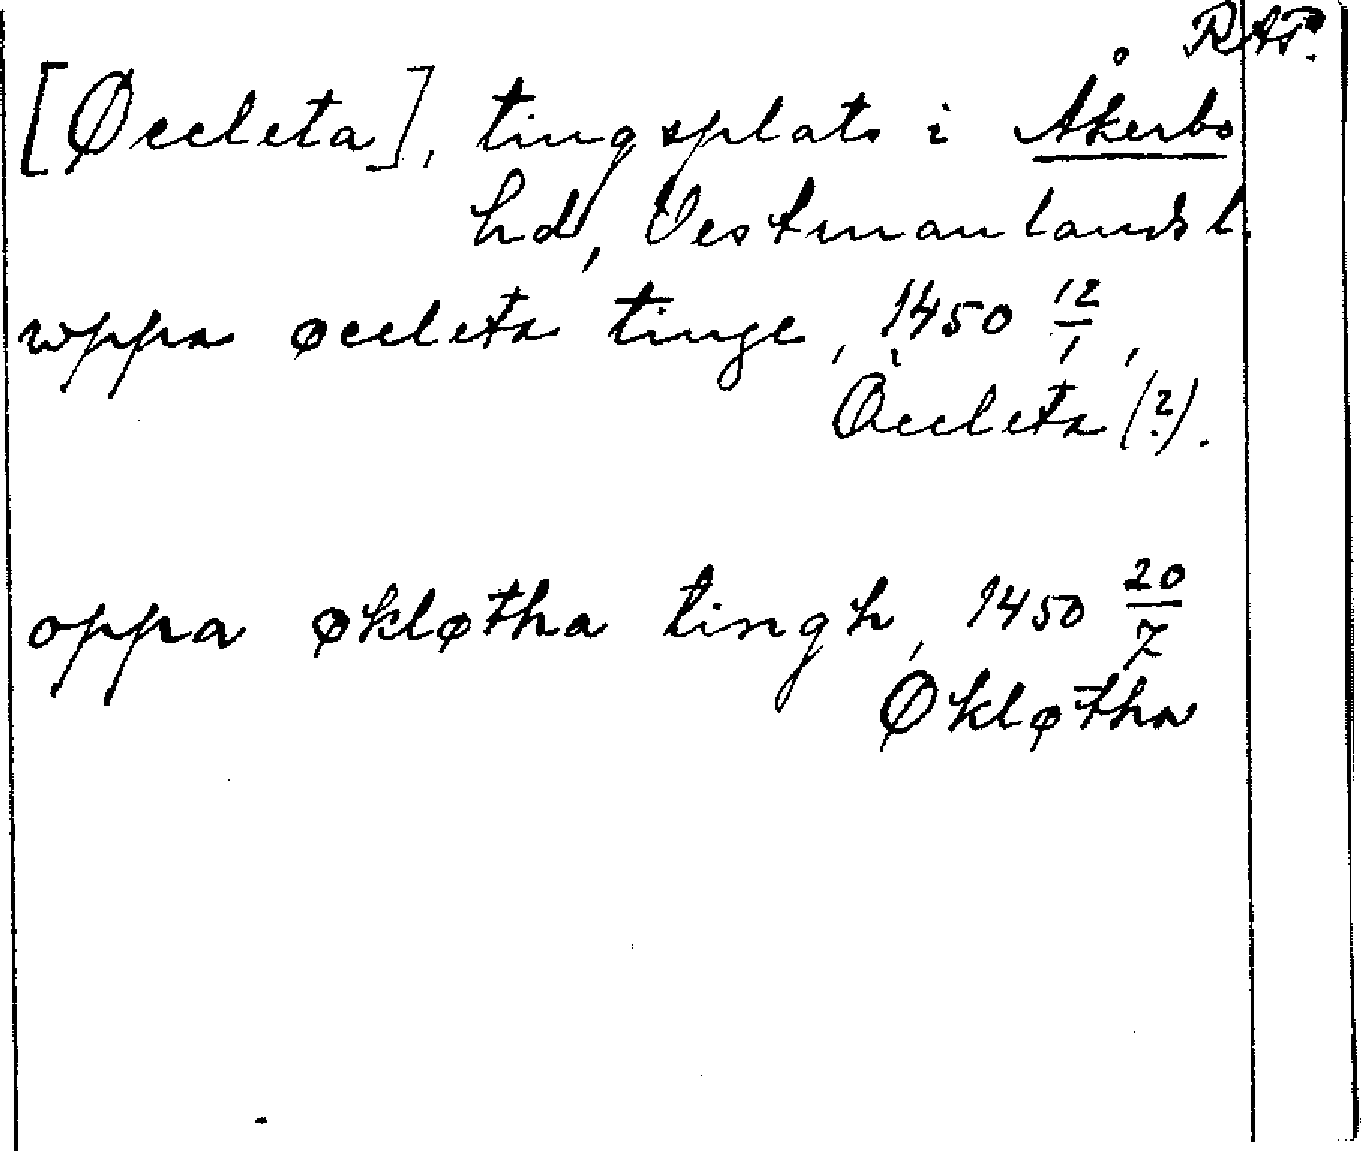 RAP.
[Øccleta], tingsplats i Åkerbo
hd, Vestmanlands l.
wppa øccleta tinge, 1450 12/1,
Øccleta (?).
oppa økløtha tingh, 1450 20/7
Økløtha